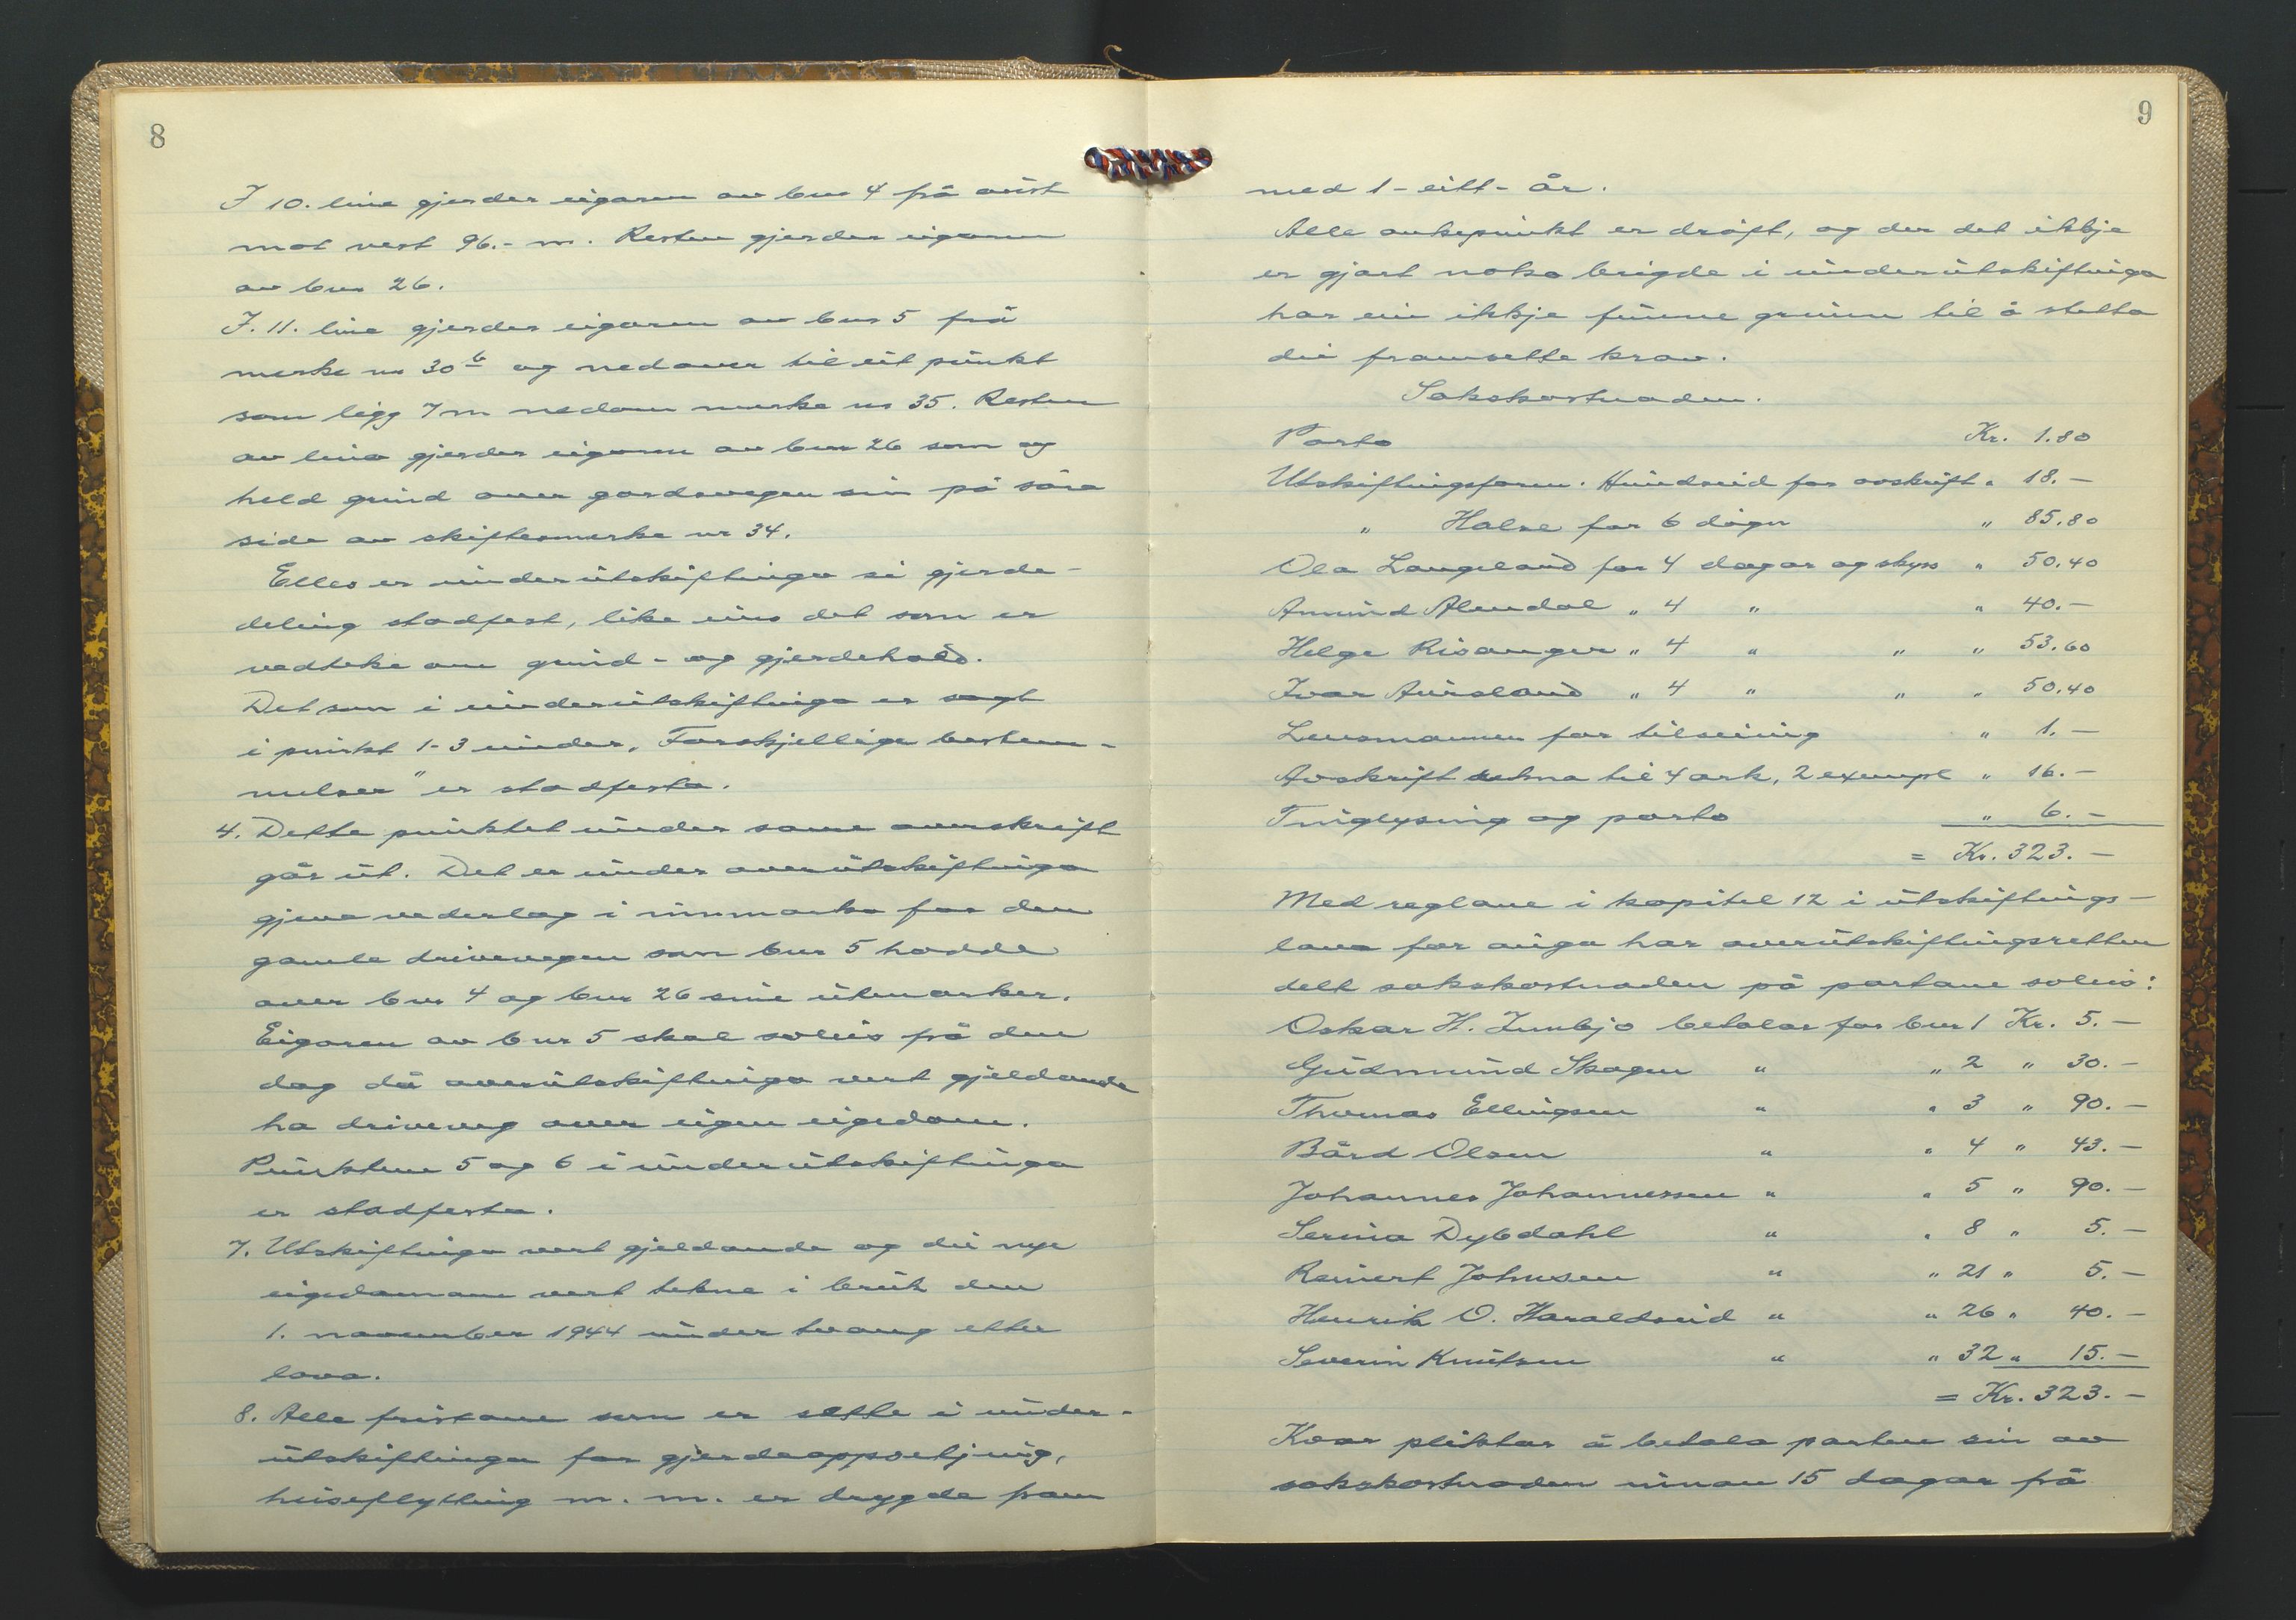 8
I 10. line gjerder eigaren av bnr 4 frå aust
mot vest 96.- m. Resten gjerder eigaren
av bnr 26.
I. 11. line gjerder eigaren av bnr 5 frå
merke nr 30 b og nedover til eit punkt
som ligg 7 m nedom merke nr 35. Resten
av lina gjerder eigaren av bnr 26 som og
held grind over gardsvegen sin på søre
side av skiftesmerke nr 34.
Elles er underutskiftinga si gjerde-
deling stadfest, like eins det som er
vedteke om grind- og gjerdehald.
Det som i underutskiftinga er sagt
i punkt 1-3 under „Forskjellige bestem-
melser" er stadfesta.
4. Dette punktet under same overskrift
går ut. Det er under overutskiftinga
gjeve vederlag i innmarka for den
gamle drivevegen som bnr 5 hadde
over bnr 4 og bnr 26 sine utmarker.
Eigaren av bnr 5 skal soleis frå den
dag då overutskiftinga vert gjeldande
ha driveveg over eigen eigedom.
Punktene 5 og 6 i underutskiftinga
er stadfesta.
7. Utskiftinga vert gjeldande og dei nye
eigedomane vert tekne i bruk den
1. november 1944 under tvang etter
lova.
8. Alle fristane som er sette i under-
utskiftinga for gjerdeoppsetjing,
huseflytting m. m. er drygde fram
9
med 1 - eitt - år.
Alle ankepunkt er drøft, og der det ikkje
er gjort noko brigde i underutskiftinga
har ein ikkje funne grunn til å støtta
dei framsette krav.
Sakskostnaden.
Porto Kr. 1.80
Utskiftingsform. Hundseid for avskrift " 18.-
" Halse for 6 døgn " 85.80
Ola Langeland for 4 dagar og skyss " 50.40
Amund Alendal " 4 " " 40.-
Helge Risanger " 4 " " " 53.60
Ivar Aursland " 4 " " " 50.40
Lensmannen for tilseiing " 1.-
Avskrift rekna til 4 ark, 2 exempl " 16.-
Tinglysing og porto " 6.-
= Kr. 323.-
Med reglane i kapitel 12 i utskiftings-
lova for auga har overutskiftingsretten
delt sakskostnaden på partane soleis:
Oskar H. Innbjo betalar for bnr 1 Kr. 5.-
Gudmund Skogen " " 2 " 30.-
Thomas Ellingsen " " 3 " 90.-
Bård Olsen " " 4 " 43.-
Johannes Johannessen " " 5 " 90.-
Serina Dybdahl " " 8 " 5.-
Reinert Johnsen " " 21 " 5.-
Henrik O. Haraldseid " " 26 " 40.-
Severin Knutsen " " 32 " 15.-
= Kr. 323.-
Kvar pliktar å betala parten sin av
sakskostnaden innan 15 dagar frå